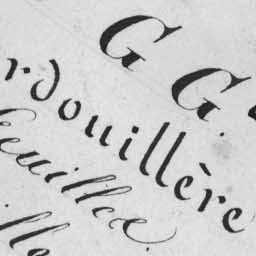 G G.
rdouillère
feuillée.
ille